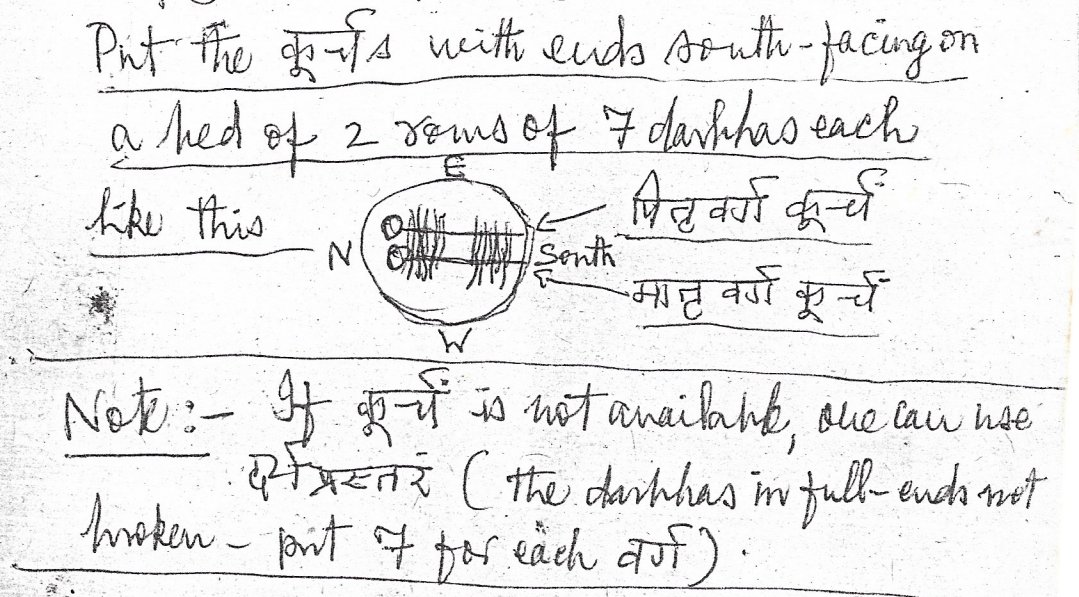 Put the कूर्चs with ends south-facing on
a bed of 2 rows of 7 darbhas each
E
like this
N
South
W
पितृ वर्ग कूर्चं
मातृ वर्ग कूर्चं
Note :- If कूर्चं is not available, one can use
दर्भप्रस्तरं ( the darbhas in full-ends not
broken - put 7 for each वर्ग ) .